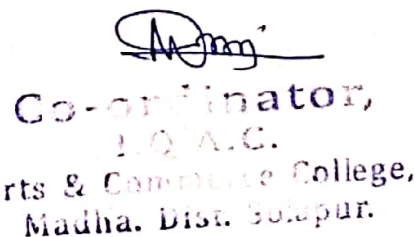 Co-ordinator,
I.Q.A.C.
rts & Commerce College,
Madha. Dist. Solapur.